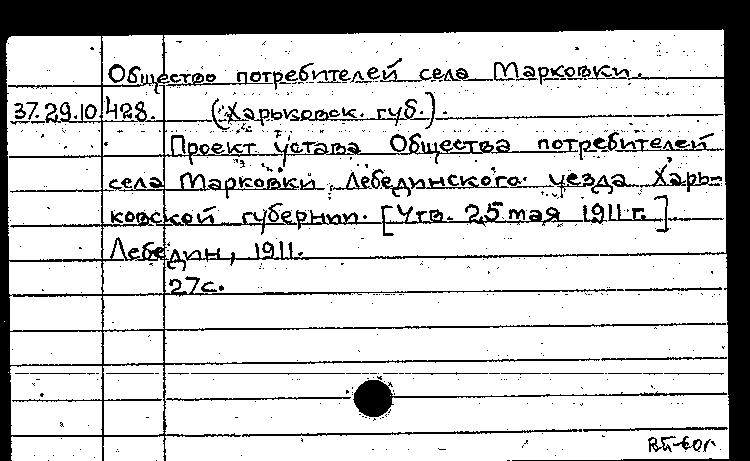 Общество потребителей села Марковки.
37.29.10.428. (Харьковск. губ.).
Проект устава Общества потребителей
села Марковки, Лебединского уезда Харь-
ковской губернии. [Утв. 25 мая 1911 г.]
Лебедин, 1911.
27с.